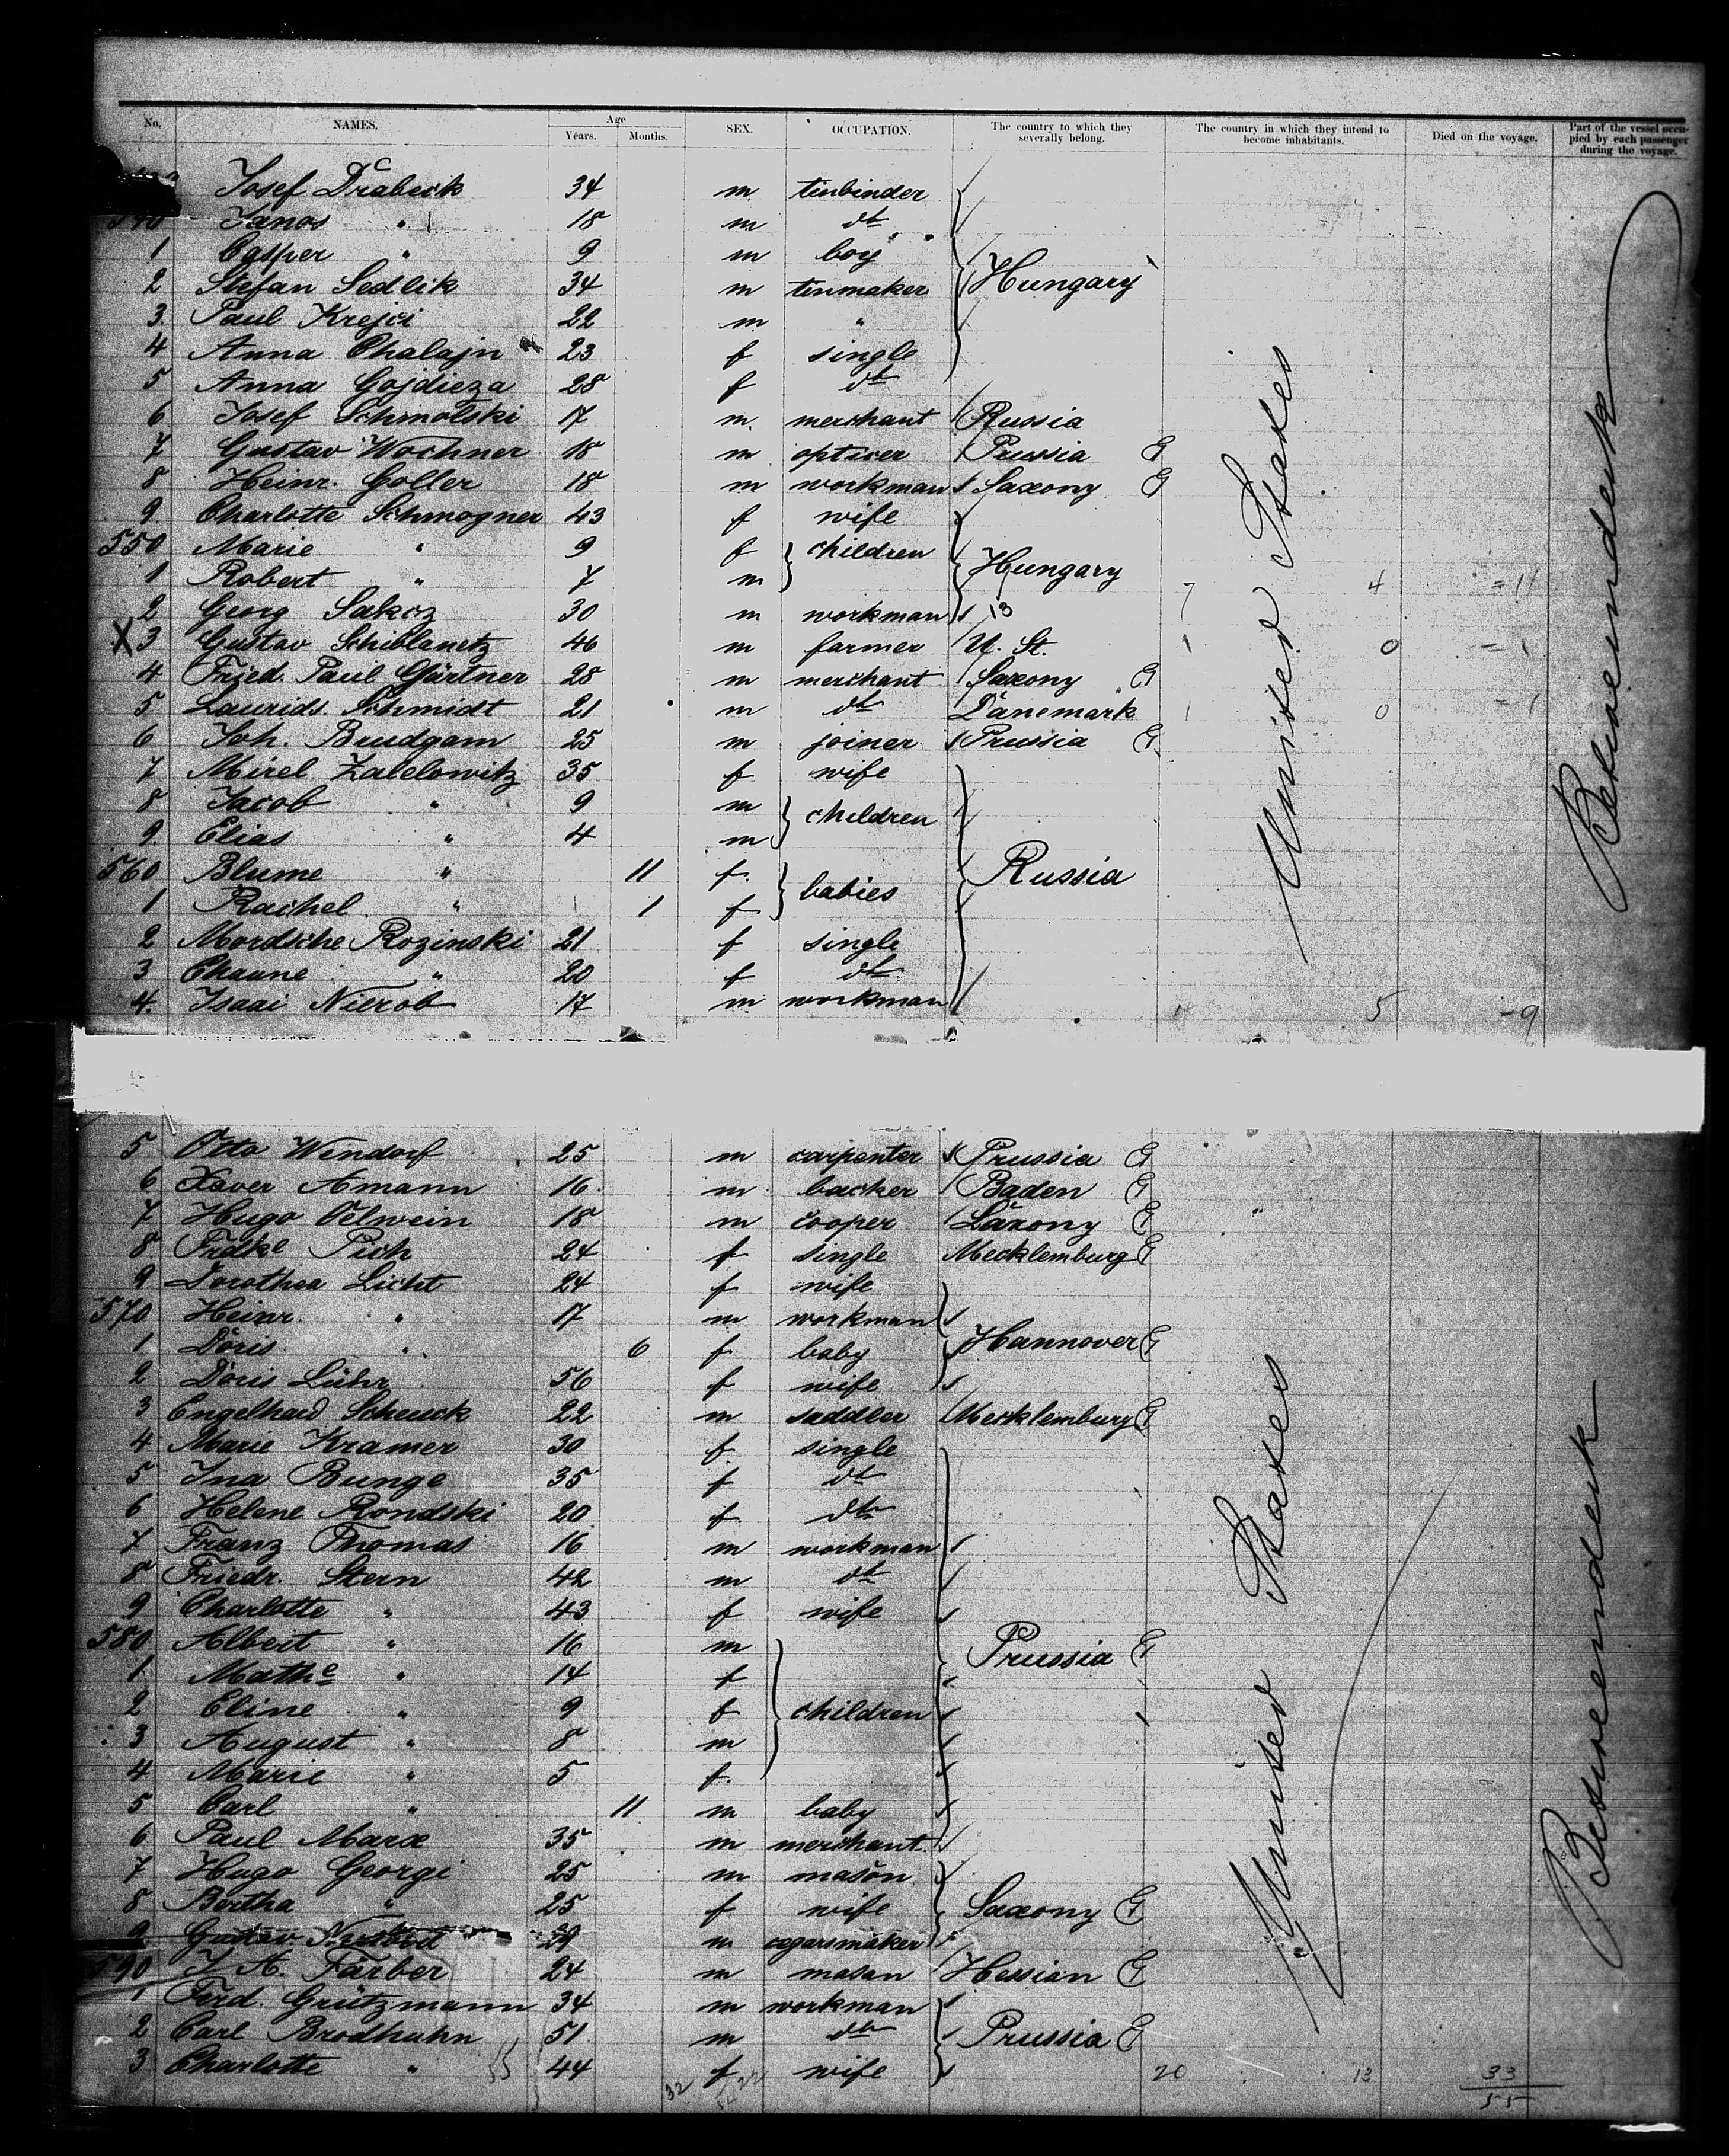 No. NAMES. Age Years. Months. SEX. OCCUPATION. The country to which they severally belong. The country in which they intend to become inhabitants. Died on the voyage. Part of the vessel occupied by each passenger during the voyage.
Josef Drabeck 34 m tinbinder
540 Janos " 18 m dto
1 Casper " 9 m boy
2 Stefan Sedlik 34 m tinmaker Hungary
3 Paul Krejci 22 m "
4 Anna Chalajn 23 f single
5 Anna Gojdieza 28 f dto
6 Josef Schmolski 17 m merchant Russia
7 Gustav Wochner 18 m opticer Prussia G
8 Heinr. Goller 18 m workman Saxony G
9 Charlotte Schmogner 43 f wife
550 Marie " 9 f children
1 Robert " 7 m Hungary 7 4 = 11
2 Georg Sakcz 30 m workman 13
X 3 Gustav Schiblanetz 46 m farmer U. St. 1 0 = 1
4 Fried. Paul Gärtner 28 m merchant Saxony G
5 Laurids. Schmidt 21 m dto Dänemark 1 0 = 1
6 Joh. Brudgam 25 m joiner Prussia G
7 Mirel Zalelowitz 35 f wife
8 Jacob " 9 m children
9 Elias " 4 m
560 Blume " 11 f babies Russia
1 Rachel " 1 f
2 Mordsche Rozinski 21 f single
3 Chaune " 20 f dto
4. Isaai Nierob 17 m workman 5 -9
United States
Betweendeck
5 Otto Wendorf 25 m carpenter Prussia G
6 Xaver Amann 16 m backer Baden G
7 Hugo Oelwein 18 m cooper Saxony G
8 Frdke Pich 24 f single Mecklemburg G
9 Dorothea Licht 24 f wife
570 Heinr. " 17 m workman
1 Doris " 6 f baby Hannover G
2 Doris Lühr 56 f wife
3 Engelhard Scheuck 22 m saddler Mecklemburg G
4 Marie Kramer 30 f single
5 Ina Bunge 35 f dto
6 Helene Rondski 20 f dto
7 Franz Thomas 16 m workman
8 Friedr. Stern 42 m dto
9 Charlotte " 43 f wife
580 Albert " 16 m Prussia G
1 Mathe " 14 f
2 Eline " 9 f children
3 August " 8 m
4 Marie " 5 f
5 Carl " 11 m baby
6 Paul Marx 35 m merchant
7 Hugo Georgi 25 m mason
8 Bertha " 25 f wife Saxony G
9 Gustav 29 m cegarsmaker
590 J. A. Färber 24 m mason Hessian G
1 Ferd. Grützmann 34 m workman
2 Carl Brodhuhn 51 m dto Prussia G
3 Charlotte " 44 f wife 20 13 33
32 55
United States
Betweendeck